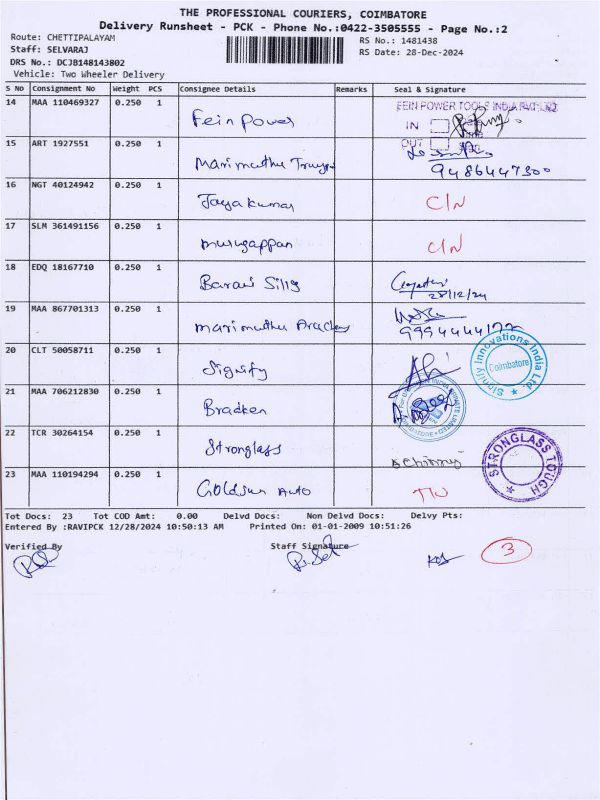 THE PROFESSIONAL COURIERS, COIMBATORE
Delivery Runsheet - PCK - Phone No.:0422-3505555 - Page No.:2
Route: CHETTIPALAYAM RS No.: 1481438
Staff: SELVARAJ RS Date: 28-Dec-2024
DRS No.: DCJB148143802
Vehicle: Two Wheeler Delivery
S No Consignment No Weight PCS Consignee Details Remarks Seal & Signature
14 MAA 110469327 0.250 1 Fein Power FEIN POWER TOOLS INDIA PVT LTD
IN
OUT
15 ART 1927551 0.250 1 Marimuthu 9486447300
16 NGT 40124942 0.250 1 Jayakumar C/N
17 SLM 361491156 0.250 1 Murugappan C/N
18 EDQ 18167710 0.250 1 Barani Silks
28/12/24
19 MAA 867701313 0.250 1 Marimuthu
20 CLT 50058711 0.250 1 Signify Signify Innovations India Ltd Coimbatore
21 MAA 706212830 0.250 1 Bradken
22 TCR 30264154 0.250 1 Stronglass STRONGLASS TOUGH
23 MAA 110194294 0.250 1 Goldsun Auto
Tot Docs: 23 Tot COD Amt: 0.00 Delvd Docs: Non Delvd Docs: Delvy Pts:
Entered By :RAVIPCK 12/28/2024 10:50:13 AM Printed On: 01-01-2009 10:51:26
Verified By Staff Signature
3